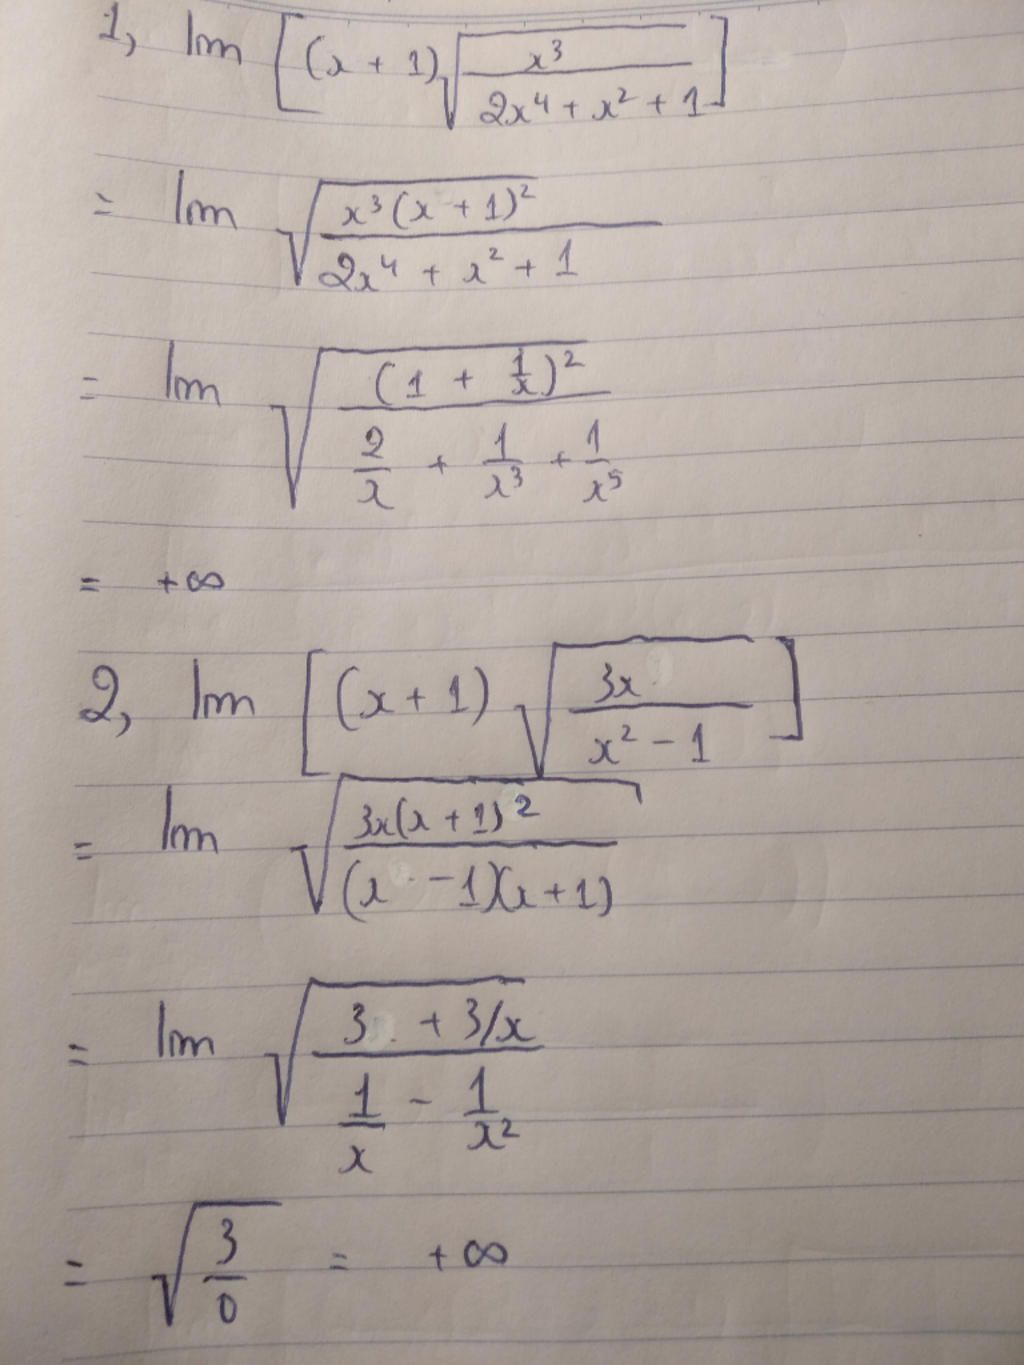 1, lim [(x + 1)√(x³ / (2x⁴ + x² + 1))]
= lim √(x³(x + 1)² / (2x⁴ + x² + 1))
= lim √((1 + 1/x)² / (2/x + 1/x³ + 1/x⁵))
= +∞
2, lim [(x + 1) √(3x / (x² - 1))]
= lim √(3x(x + 1)² / ((x - 1)(x + 1)))
= lim √((3 + 3/x) / (1/x - 1/x²))
= √(3/0) = +∞